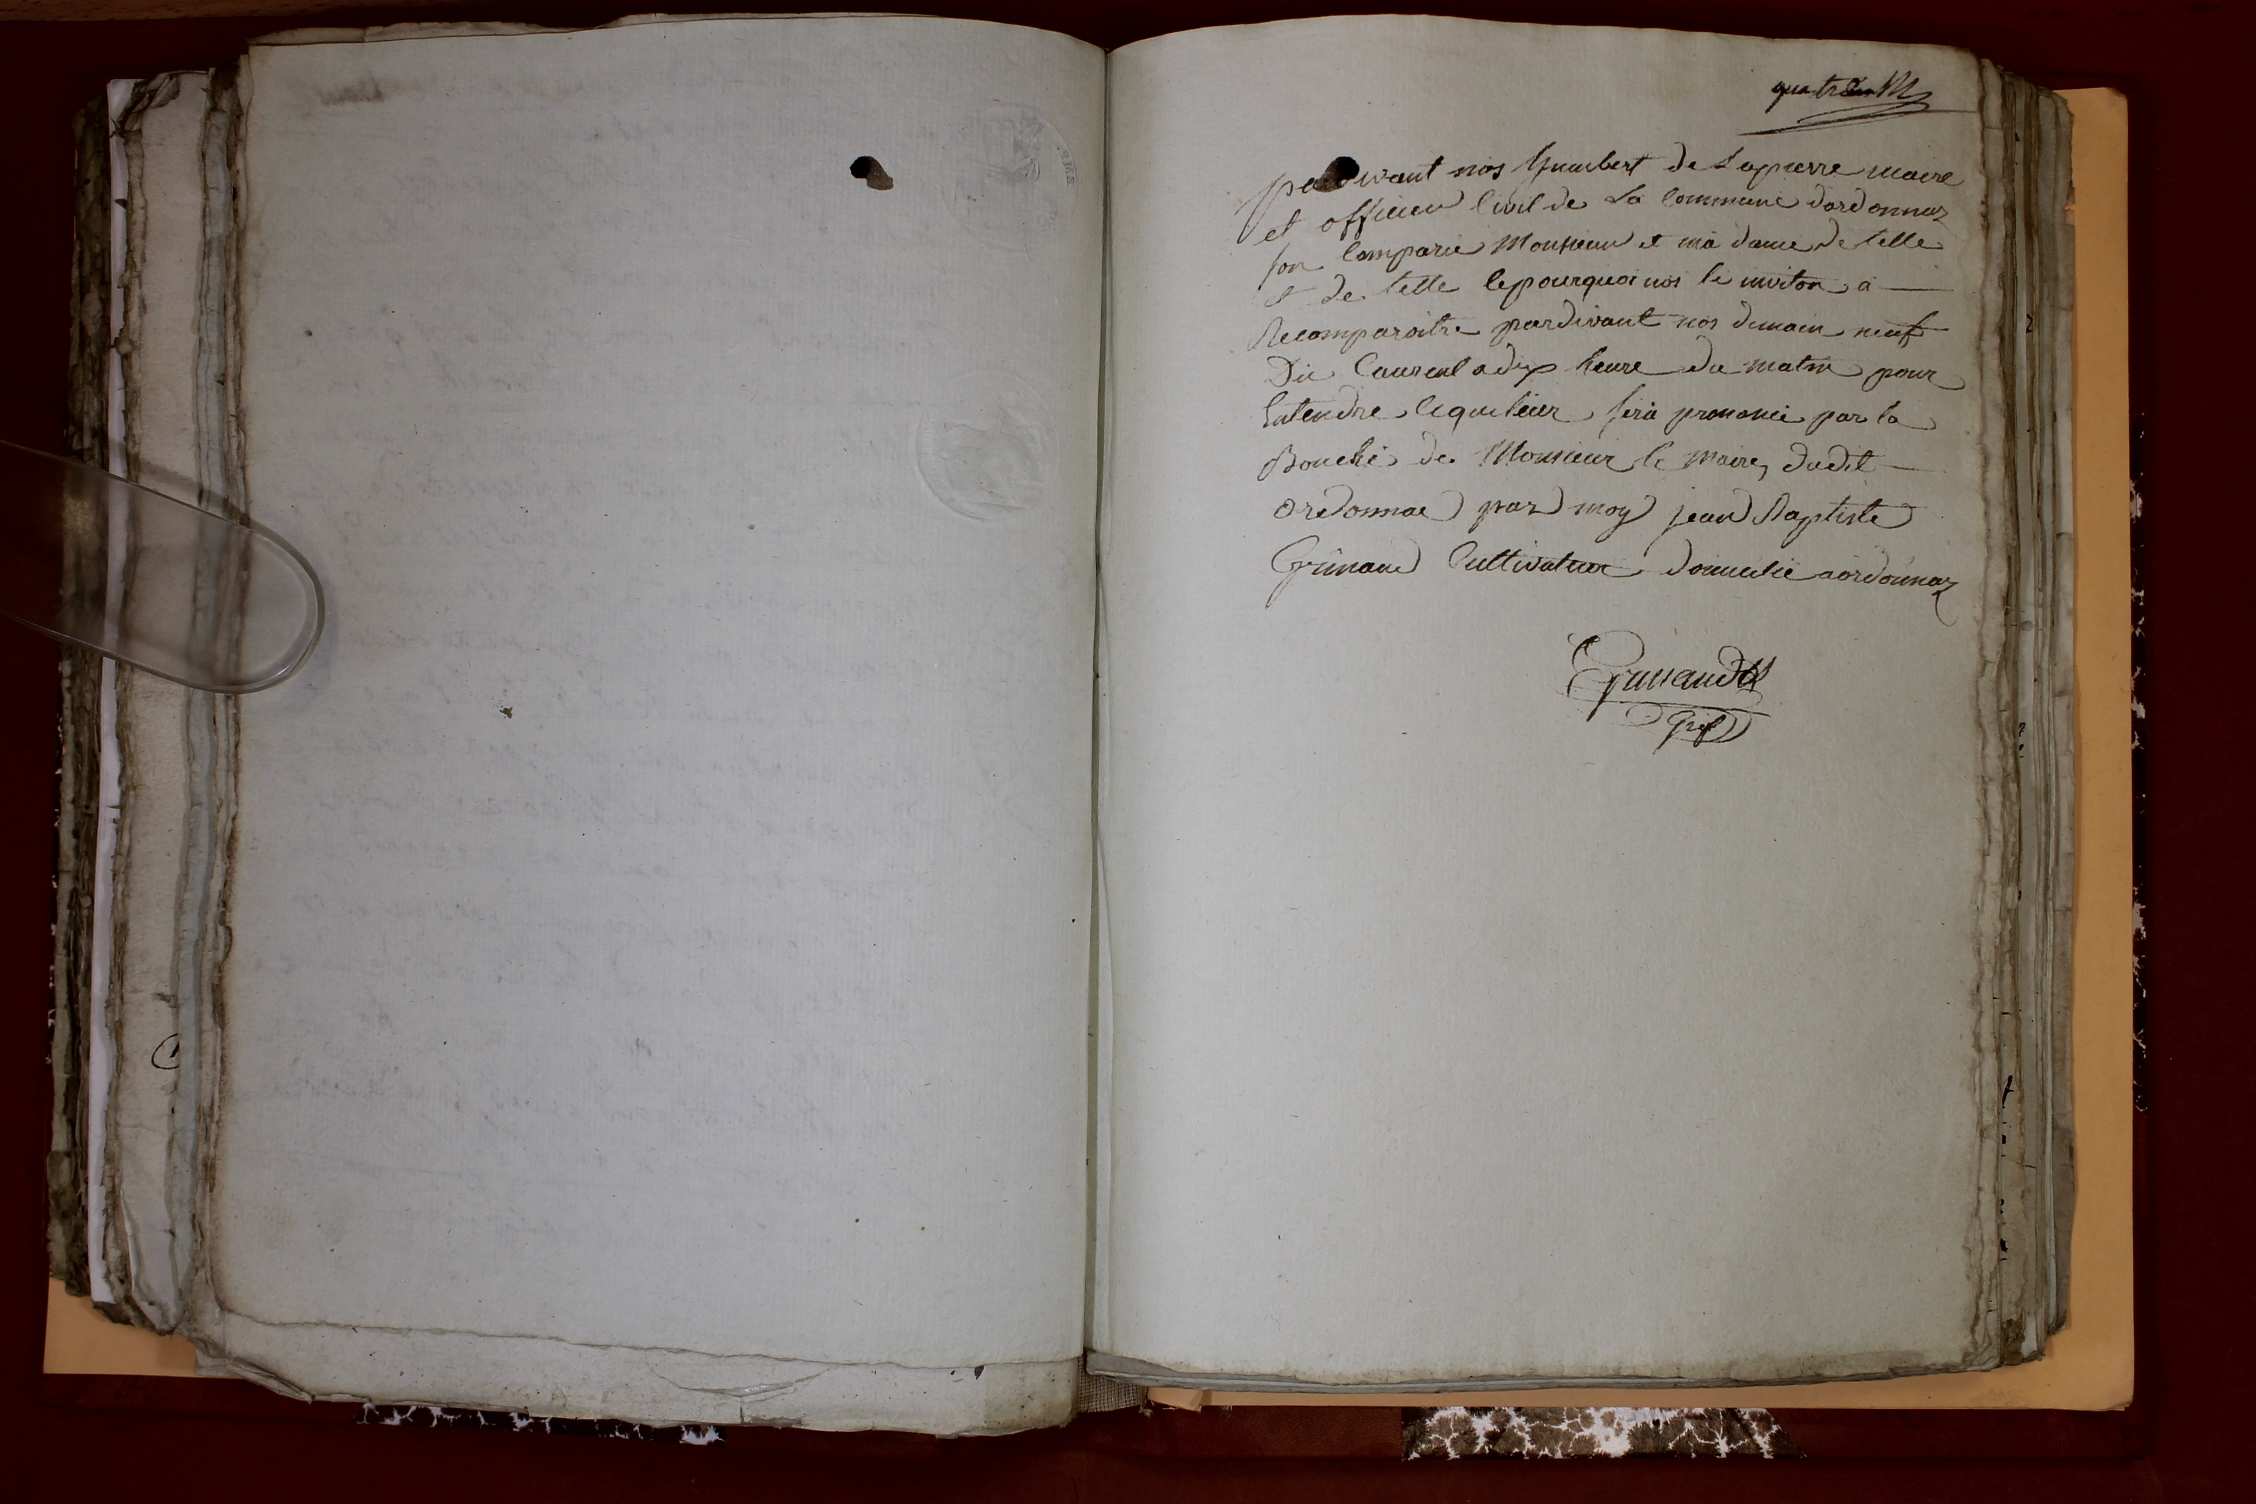 quatre
pardivant nos humbert de Lapierre maire
et officieu Civil de La Commune dordonnaz
son Comparie Monsieur et ma dame de telle
et de telle lepourquoi nos le inviton a
Recomparoitre pardivant nos demain neuf
Du Courent a dix heure du matin pour
Entendre lequeleur sera prononcé par la
Bouche de Monsieur le maire dudit
ordonnaz par moy jean Baptiste
Grinand Cultivateur domicilie aordonnaz
Grinand
gref